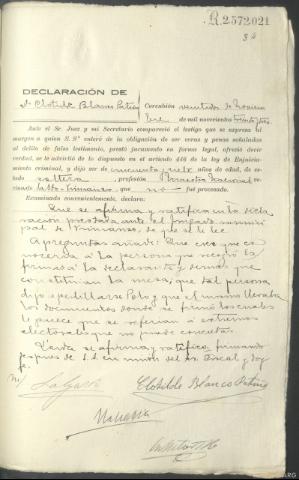 R.2572021
34
DECLARACIÓN DE
Dª Clotilde Blanco Patiño
Corcubión veintidos de Noviem
bre de mil novecientos treinta y tres.
Ante el Sr. Juez y mi Secretario compareció el testigo que se expresa al
margen a quien S. Sª enteró de la obligación de ser veraz y penas señaladas
al delito de falso testimonio, prestó juramento en forma legal, ofreció decir
verdad, se le advirtió de lo dispuesto en el artículo 446 de la ley de Enjuicia-
miento criminal, y dijo ser de cincuenta y seis años de edad, de es-
tado soltera, profesión Maestra Nacional, ve-
cino de Vimianzo, que no fué procesado.
Examinado convenientemente, declara:
Que se afirma y ratifica en la decla-
ración prestada ante el Juzgado munici-
pal de Vimianzo, de que se le lee.
A preguntas añade: Que cree que co-
nocería a la persona que recogió las
firmas a la declarante y demás que
constituían la mesa; que tal persona
dijo apellidarse Polo y que el mismo llevaba
los documentos donde se firmó los cuales
le parece que se referían a extremos
electorales que no puede concretar.
Leída se afirma, ratifica, firmando
después de S.S. en unión del Sr. Fiscal y doy
fe.
Clotilde Blanco Patiño